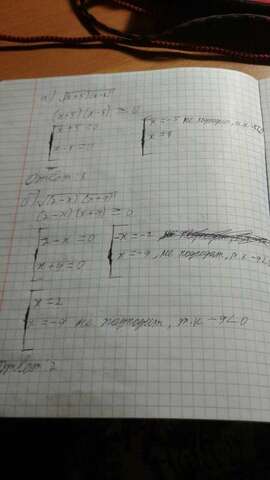 а) √(x+5)(x-8)
(x+5)(x-8) = 0
x+5=0
x-8=0
x=-5 не подходит, т.к -5<0
x=8
Ответ: 8
б) √(2-x)(x+9)
(2-x)(x+9) = 0
2-x=0
x+9=0
-x=-2
x=-9, не подходит, т.к -9<
x=2
x=-9 не подходит, т.к -9<0
Ответ: 2